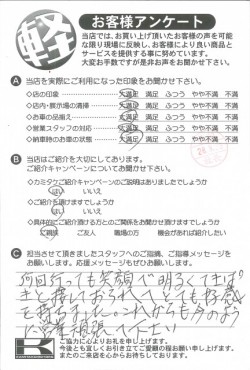 軽
お客様アンケート
当店では、お買い上げ頂いたお客様の声を可能
な限り現場に反映し、お客様により良い商品と
サービスを提供する事に努めています。
大変お手数ですが是非お声をお聞かせ下さい。
A 当店を実際にご利用になった印象をお聞かせ下さい。
◇店の印象 大満足 満足 ふつう やや不満 不満
◇店内・展示場の清掃 大満足 満足 ふつう やや不満 不満
◇お車の品揃え 大満足 満足 ふつう やや不満 不満
◇営業スタッフの対応 大満足 満足 ふつう やや不満 不満
◇納車時のお車の状態 大満足 満足 ふつう やや不満 不満
B 当店はご紹介を大切にしております。
ご紹介キャンペーンについてお聞かせ下さい。
◇カミタケご紹介キャンペーンのご説明はありましたでしょうか
はい いいえ
◇ご紹介を頂けますでしょうか
はい いいえ
◇具体的にご紹介頂ける方とのご関係をお聞かせ頂けますでしょうか
ご親族 ご友人 職場の方 機会があれば紹介したい
C 担当させて頂きましたスタッフへのご指摘、ご指導メッセージを
お願いします。応援メッセージもぜひお願いします。
何回行っても笑顔で明るくてきぱ
きと働いておられてとても好感
を持ちました。これからも今のよう
に営業頑張って下さい
K
ご協力に心よりお礼を申し上げます。
今後とも宜しくお引き立てのほどお願い申し上げます。
またのご来店を心からお待ちしております。